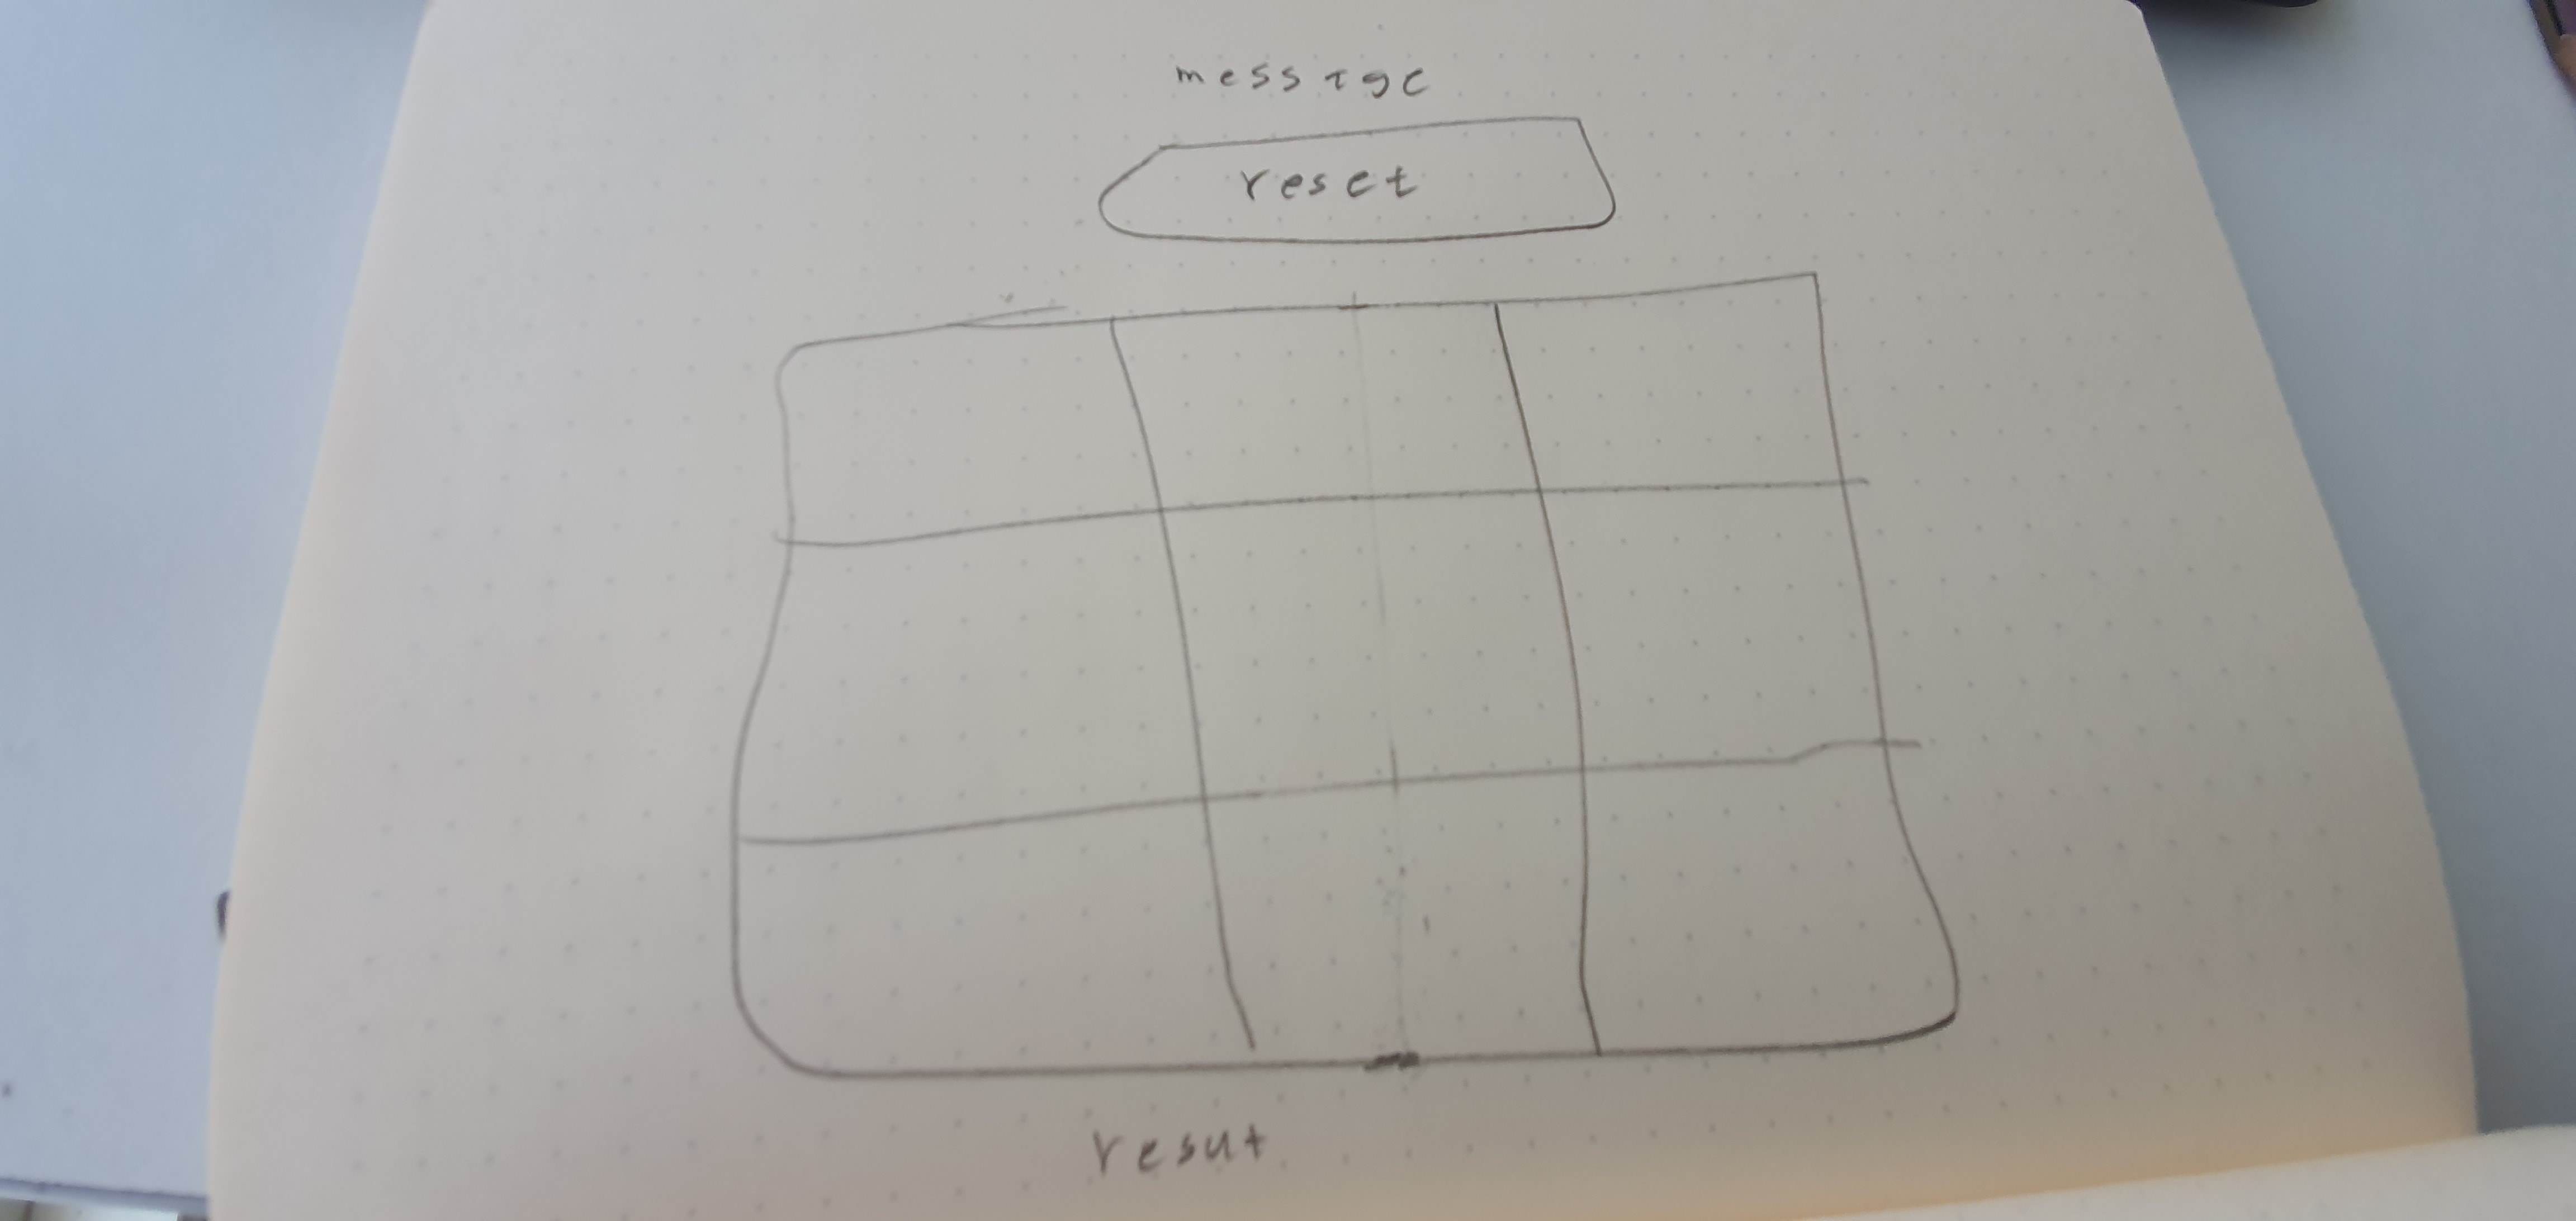 message
reset
resut